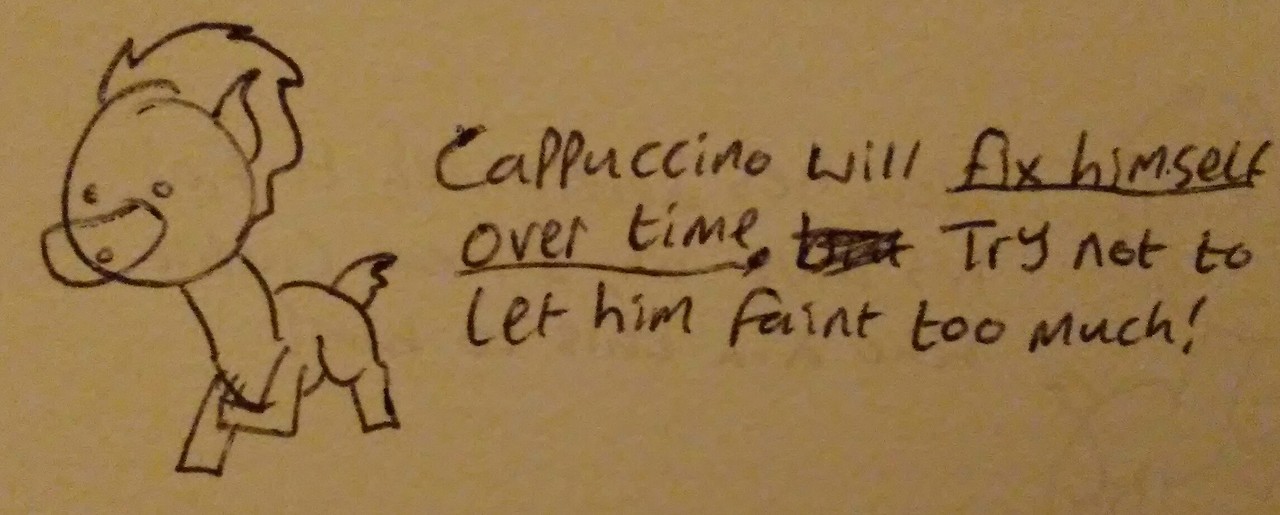 Cappuccino will fix himself
over time. Try not to
let him faint too much!